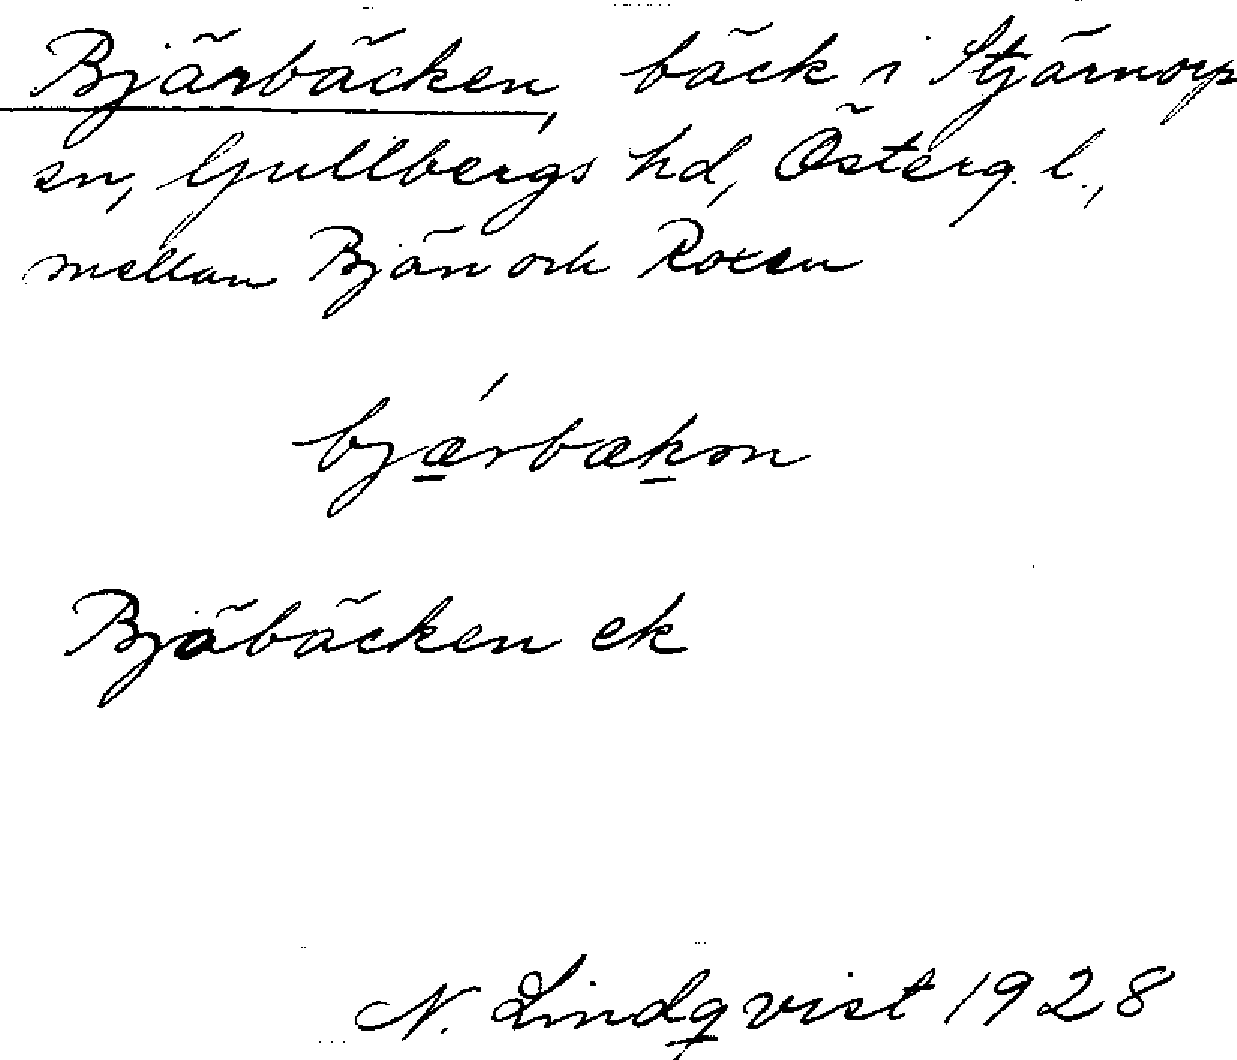 Bjärbäcken, bäck i Stjärnorp
sn, Gullbergs hd, Österg. l.,
mellan Bjän och Roxen
bjærbækən
Bjäbäcken ek
N. Lindqvist 1928